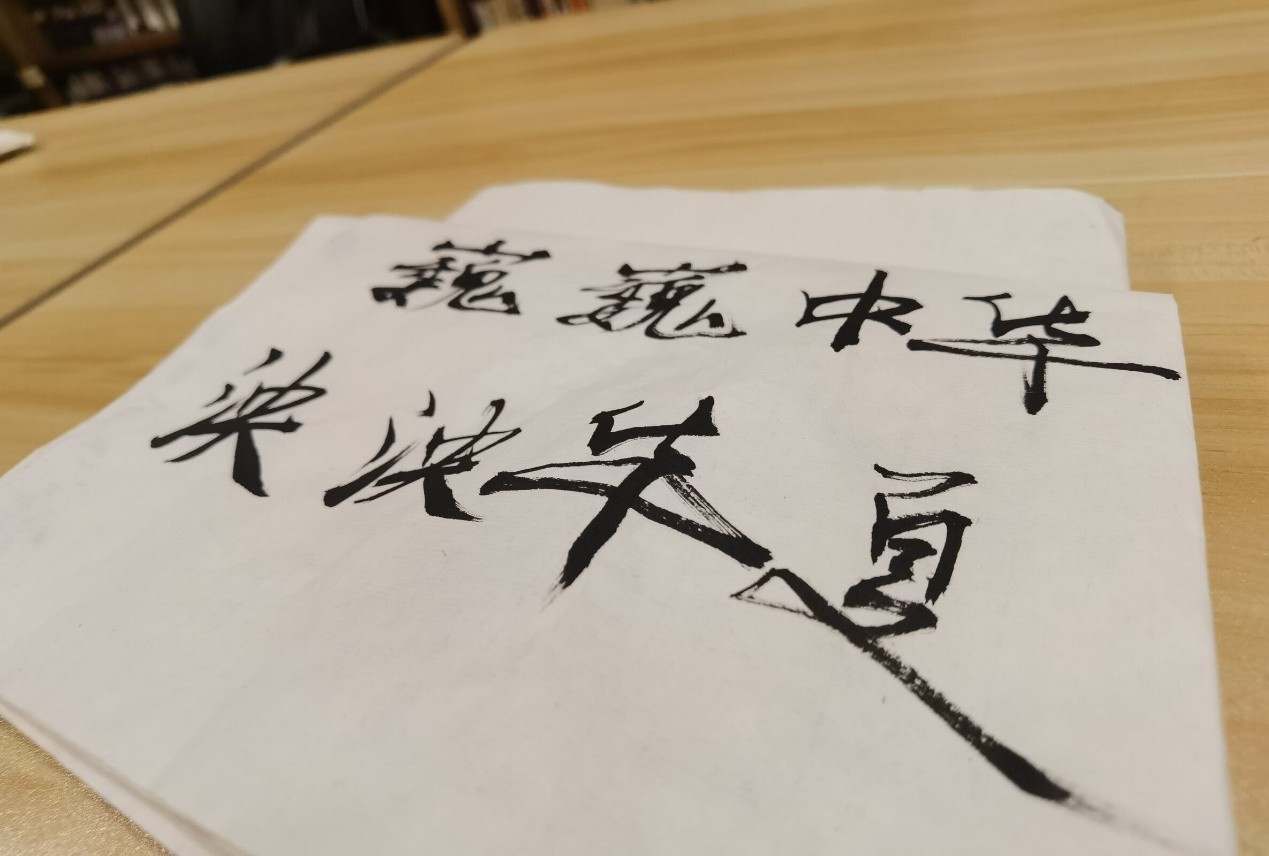 巍巍中华
泱泱华夏